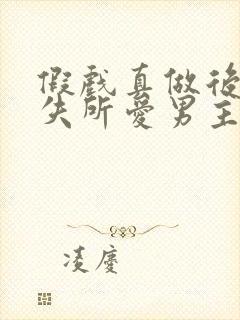 假戲真做後
失所愛男主
凌慶